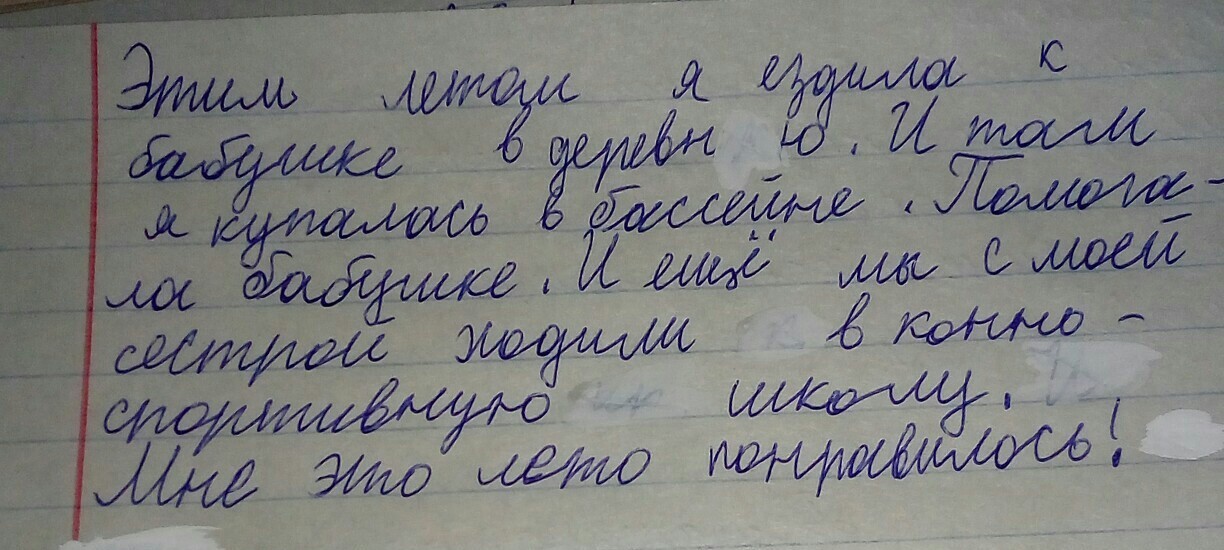 Этим летом я ездила к
бабушке в деревню. И там
я купалась в бассейне. Помога-
ла бабушке. И ещё мы с моей
сестрой ходили в конно-
спортивную школу.
Мне это лето понравилось!